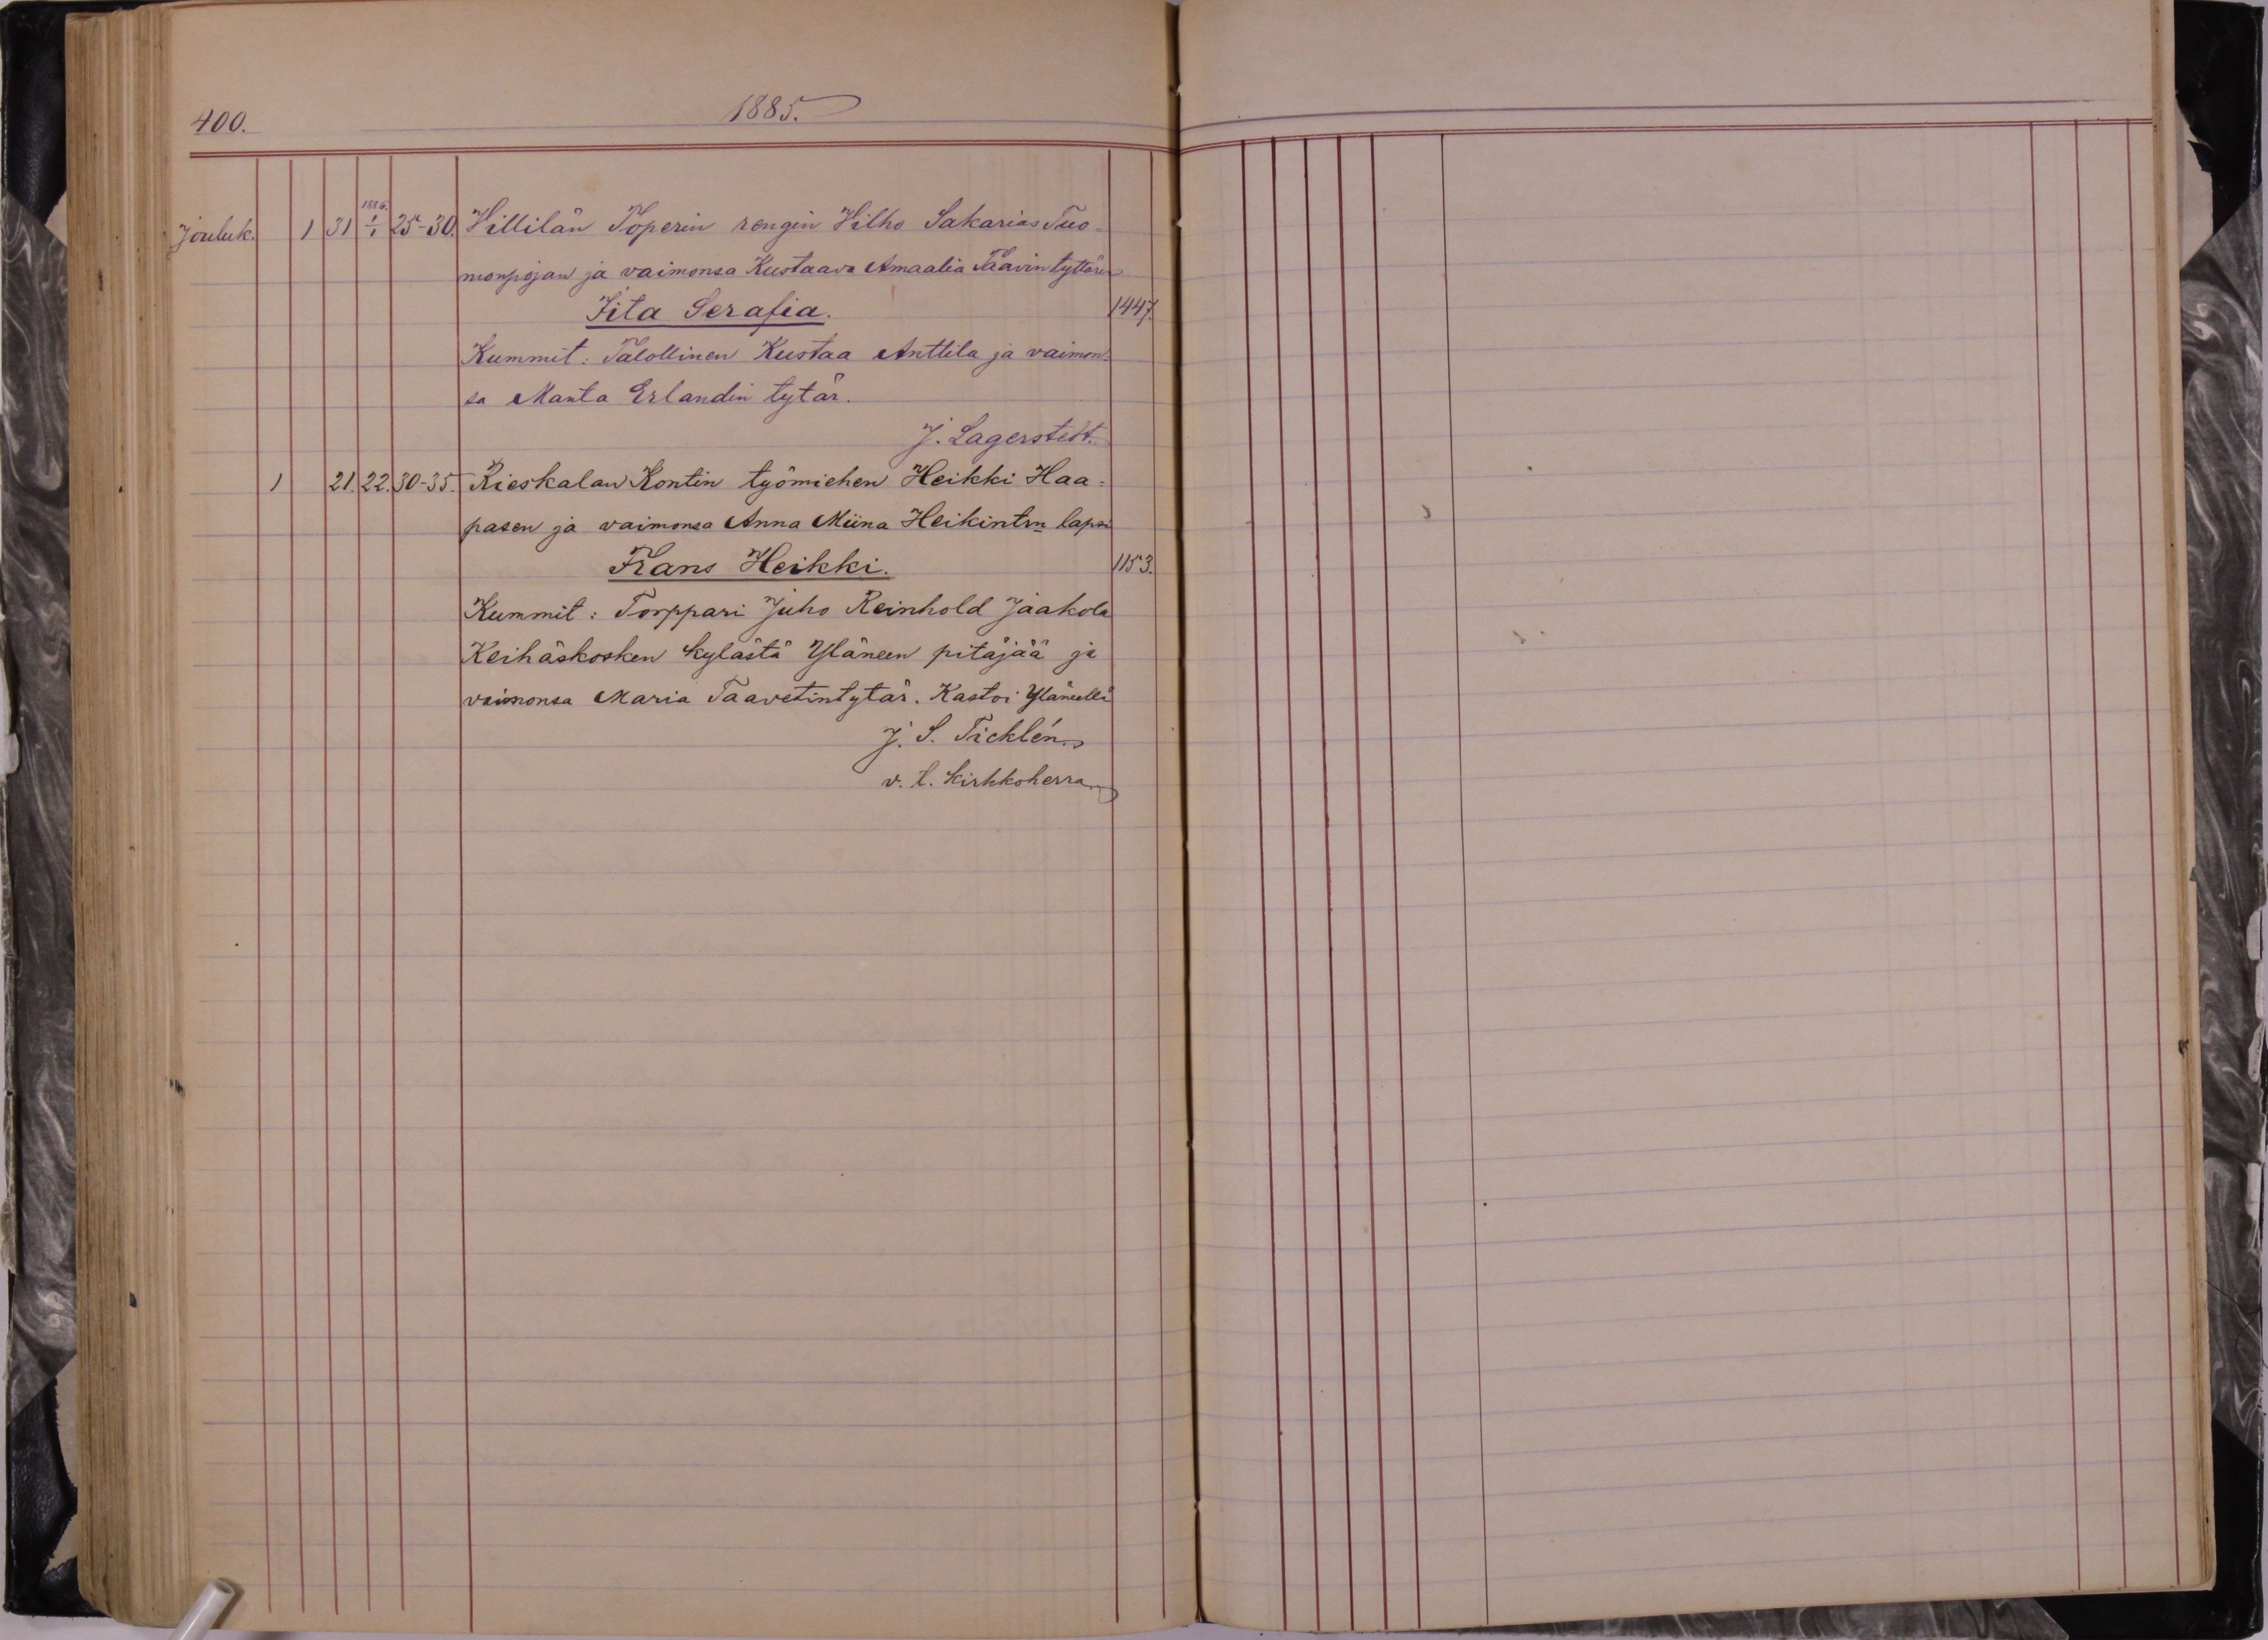 400. 1885.
Jouluk. 1 31 1886. 1/1 25-30. Hillilän Töperin rengin Vilho Sakarias Tuo=
monpojan ja vaimonsa Kustaava Amaalia Taavintyttären
Iita Serafia. 1447.
Kummit: Talollinen Kustaa Anttila ja vaimon=
sa Manta Erlandin tytär.
J. Lagerstedt.
1 21. 22. 30-35. Rieskalan Kontin työmiehen Heikki Haa=
pasen ja vaimonsa Anna Miina Heikintrn lapsi
Frans Heikki. 1153.
Kummit: Torppari Juho Reinhold Jaakola
Keihäskosken kylästä Yläneen pitäjää ja
vaimonsa Maria Taavetintytär. Kastoi Yläneellä
J. S. Ticklén.
v. t. kirkkoherra.